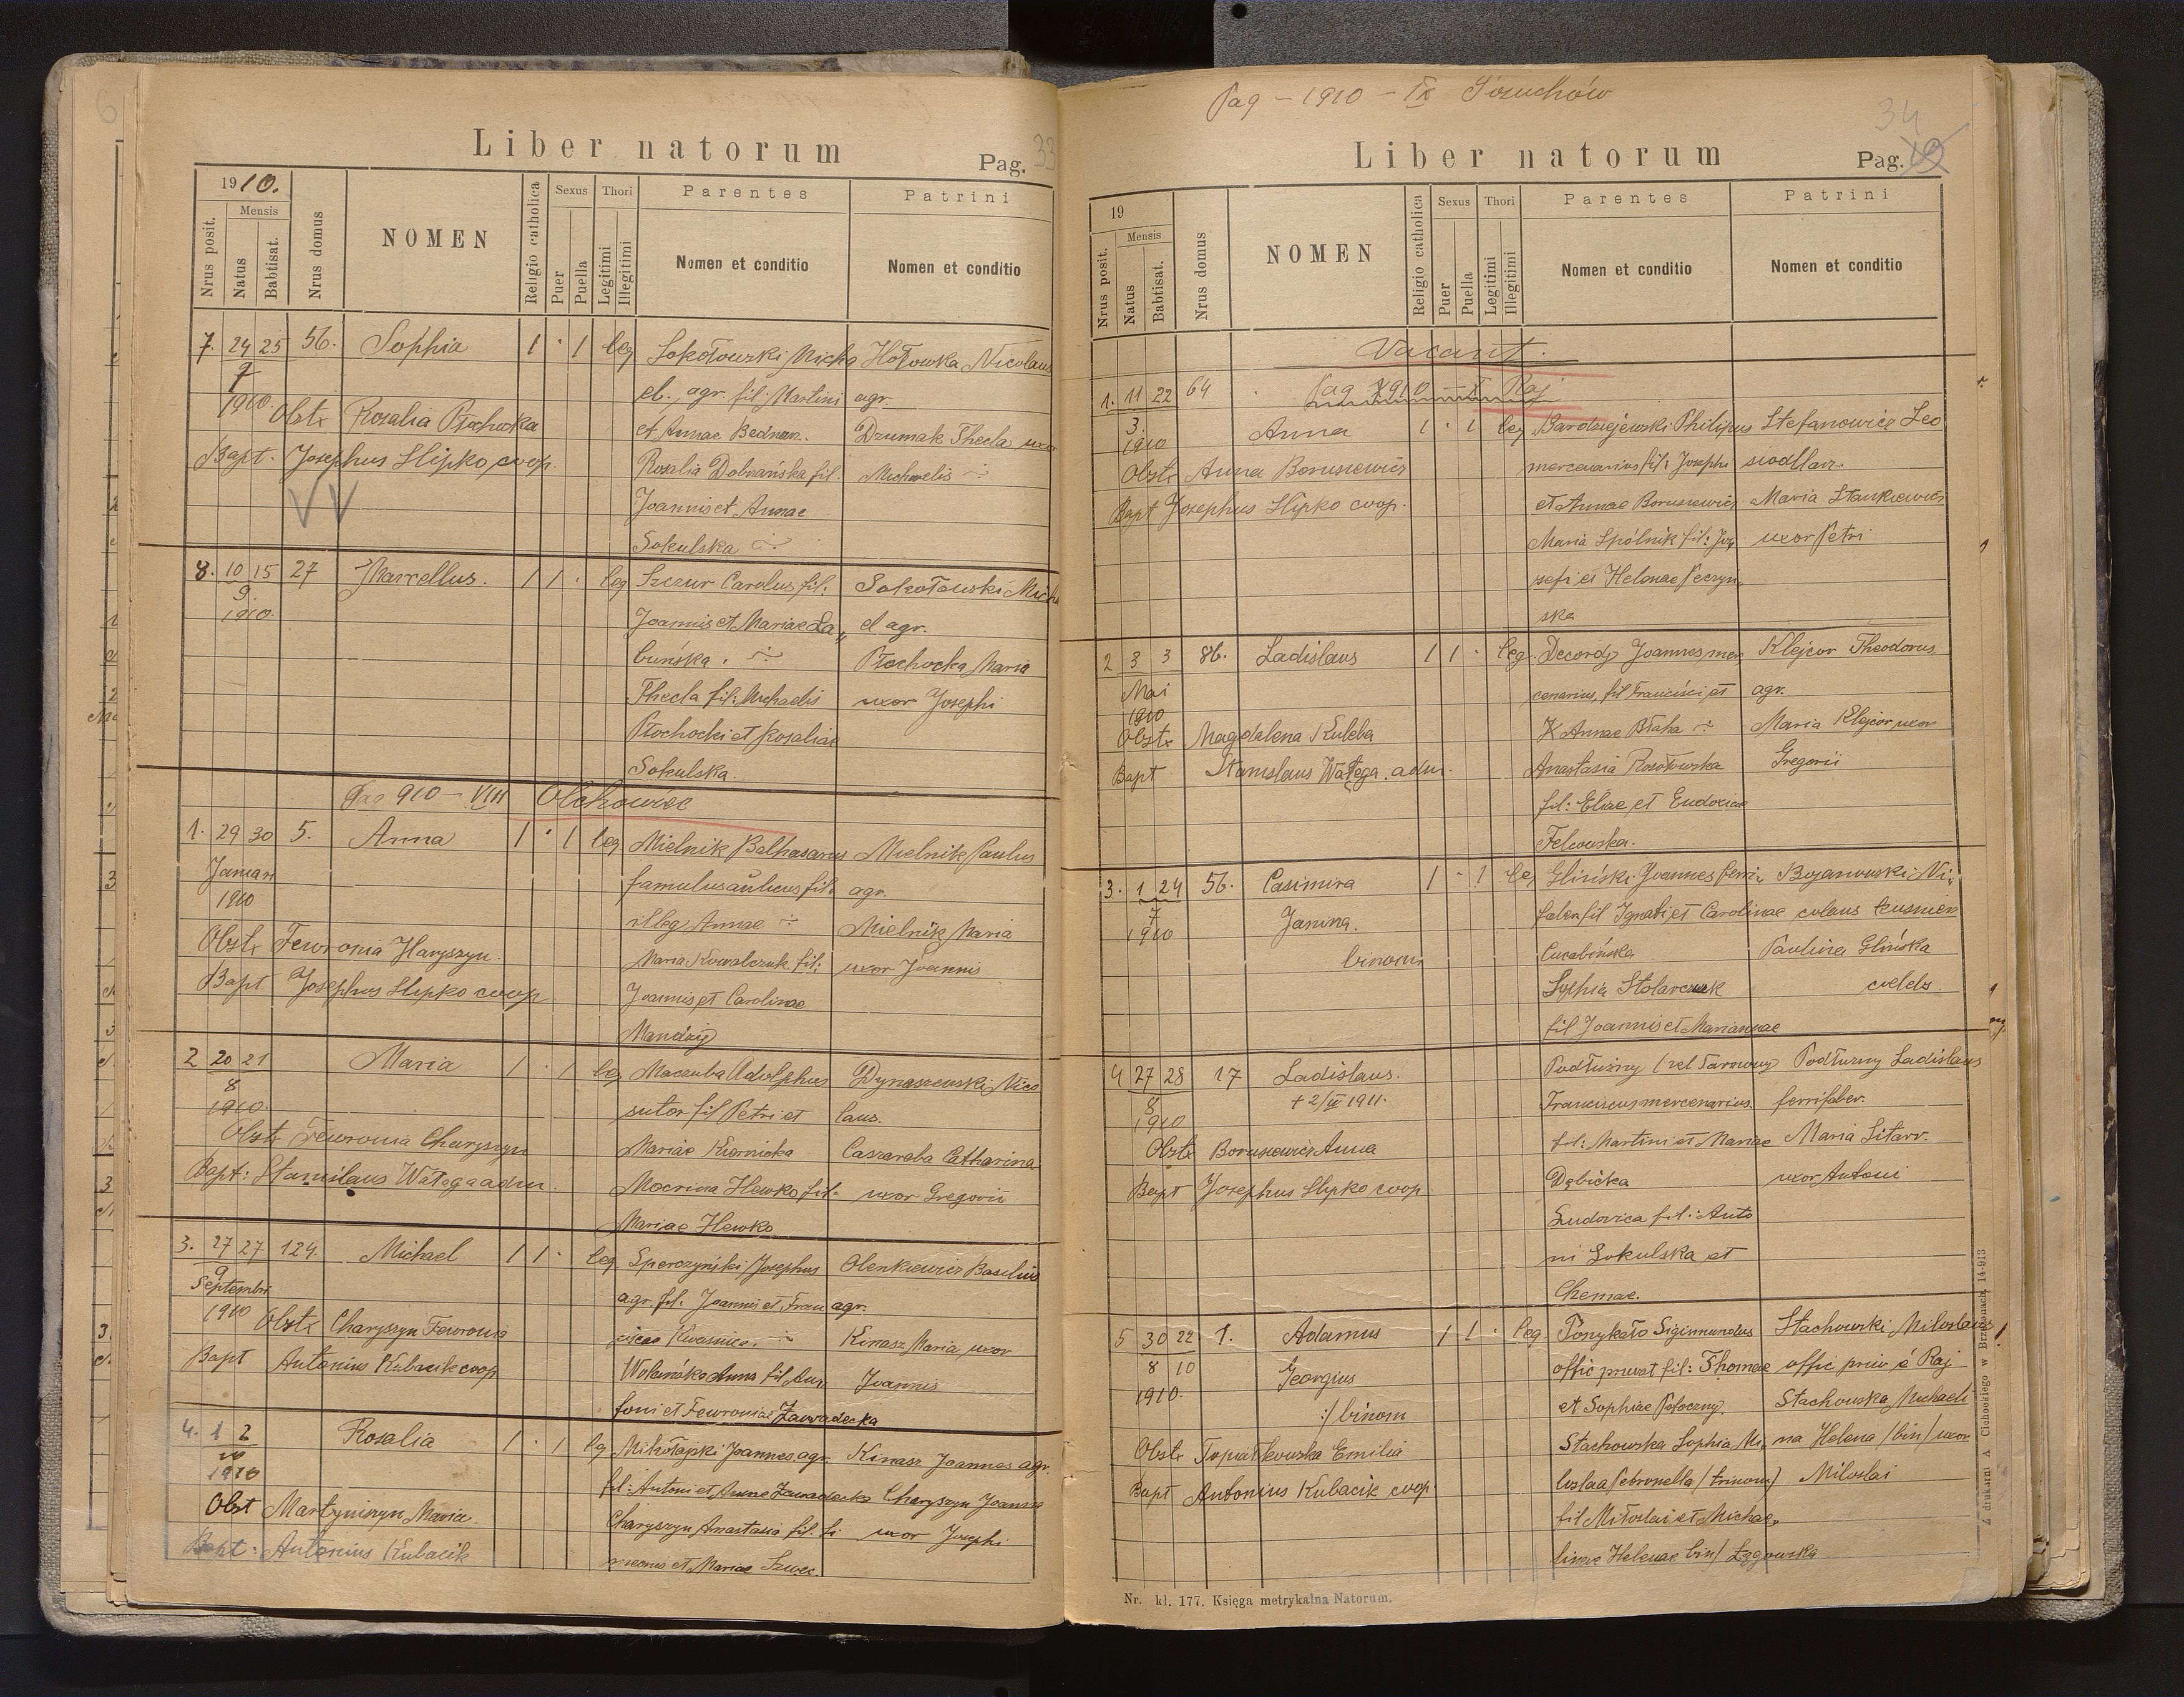 Liber natorum
Pag. 33
1910.
Nrus posit.
Mensis
Natus
Babtisat.
Nrus domus
NOMEN
Religio catholica
Sexus
Puer
Puella
Thori
Legitimi
Illegitimi
Parentes
Nomen et conditio
Patrini
Nomen et conditio
7. 24 25 56. Sophia 1 · 1 leg Sokołowski Micha Hołowka Nicolaus
9
1910
el. agr. fil. Martini agr.
Obstx Rosalia Płochocka et Annae Bednarz. Dzumak Thecla uxor
Bapt. Josephus Slipko, coop. Rosalia Dobrańska fil. Michaelis
Joannis et Annae
Sokulska
8. 10 15 27 Marcellus. 1 1 · leg Szczur Carolus fil: Sokołowski Micha
9
1910. Joannis et Mariae La„ el agr.
buńska. Płochocka Maria
Thecla fil: Michaelis uxor Josephi
Płochocki et Rosaliae
Sokulska.
Pag 910 – VIII Olchowiec
1. 29 30 5. Anna 1 · 1 leg. Mielnik Balthasarus Mielnik Paulus
Januari
1910
famulus aulicus fil: agr.
illeg Annae Mielnik Maria
Obstx Fewronia Haryszyn. Maria Kowalczuk fil: uxor Joannis
Bapt Josephus Slipko coop Joannis et Carolinae
Mandzij
2 20 21 Maria 1 · 1 leg Maczuba Adolphus Dynaszewski Nico
8
1910. sutor fil Petri et laus.
Obstx Fewronia Charyszyn Mariae Kiernicka Caszaraba Catharina
Bapt: Stanislaus Watęga adm. Mocrina Hewko fil. uxor Gregorii
Mariae Hewko
3. 27 27 124. Michael 1 1 · leg Sperczyński Josephus Olenkiewicz Basilius
9
Septembri
1910 agr. fil. Joannis et Fran agr.
Obstx Charyszyn Fewronia ciscae Kwasnica. Kinasz Maria uxor
Bapt Antonius Kubacik coop Wolańska Anna fil An„ Joannis
toni et Fewroniae Zawadecka
4. 1 2 Rosalia 1 · 1 leg Mikołajski Joannes agr. Kinasz Joannes agr.
10
1910 fil: Antoni et Annae Zawadecka Charyszyn Joanna
Obst Martyniszyn Maria Charyszyn Anastasia fil. Si uxor Josephi
Bapt: Antonius Kubacik meonis et Mariae Szwec.
Pag – 1910 – IX
34
Liber natorum
Pag. 19
19
Nrus posit.
Mensis
Natus
Babtisat.
Nrus domus
NOMEN
Religio catholica
Sexus
Puer
Puella
Thori
Legitimi
Illegitimi
Parentes
Nomen et conditio
Patrini
Nomen et conditio
Vacant.
Pag 1910 – X Raj
1. 11 22 64
3.
1910 Anna 1 · 1 leg Bardziejewski Philipus Stefanowicz Leo
Obstx Anna Borusiewicz mercenarius fil: Josephi siodlarz.
Bapt Josephus Slipko coop. et Annae Borusiewicz Maria Stankiewicz
Maria Spólnik fil: Jo„ uxor Petri
sefi et Helenae Peczyn„
ska
2 3 3 86. Ladislaus 1 1 · leg. Decordy Joannes, mer„ Klejcor Theodorus
Mai
1910 cenarius, fil Francisci et agr.
Obstx Magdalena Kuleba Annae Błaha Maria Klejcor uxor
Bapt Stanislaus Watęga. adm. Anastasia Rosołowska Gregorii
fil: Eliae et Eudoxiae
Felcowska.
3. 1 24 56. Casimira 1 · 1 leg Gliński Joannes ferri„ Bojanowski Ni„
7
1910 Janina. faber fil Ignati et Carolinae colaus
binom, Cucabińska Paulina Glińska
Sophia Stolarczuk celebs
fil Joannis et Mariannae
4 27 28 17 Ladislaus. Podłużny (vel Tarnowy) Podłużny Ladislaus
8
1910 + 2/IV 1911. Franciscus mercenarius. ferrifaber.
Obstx Borusiewicz Anna fil: Martini et Mariae Maria Sitarz.
Bapt Josephus Slipko coop Dębicka uxor Antoni
Ludovica fil: Anto
ni Sokulska et
Chemae.
5 30 22 1. Adamus 1 1 · leg. Ponykało Sigismundus Stachowski Miloslaus
8 10
1910. Georgius offic privat fil: Thomae offic priv é Raj
:/ binom et Sophiae Potoczny. Stachowska Michaeli
Obstx Topiałkowska Emilia Stachowska Sophia, Mi„ na Helena /bin/ uxor
Bapt Antonius Kubacik coop loslaa Petronella /trinom/ Miloslai
fil Miłoslai et Michae„
linae Helenae bin/ Łęgowska
Nr. kl. 177. Księga metrykalna Natorum.
Z drukarni A Cichockiego w Brzeżanach 14-913